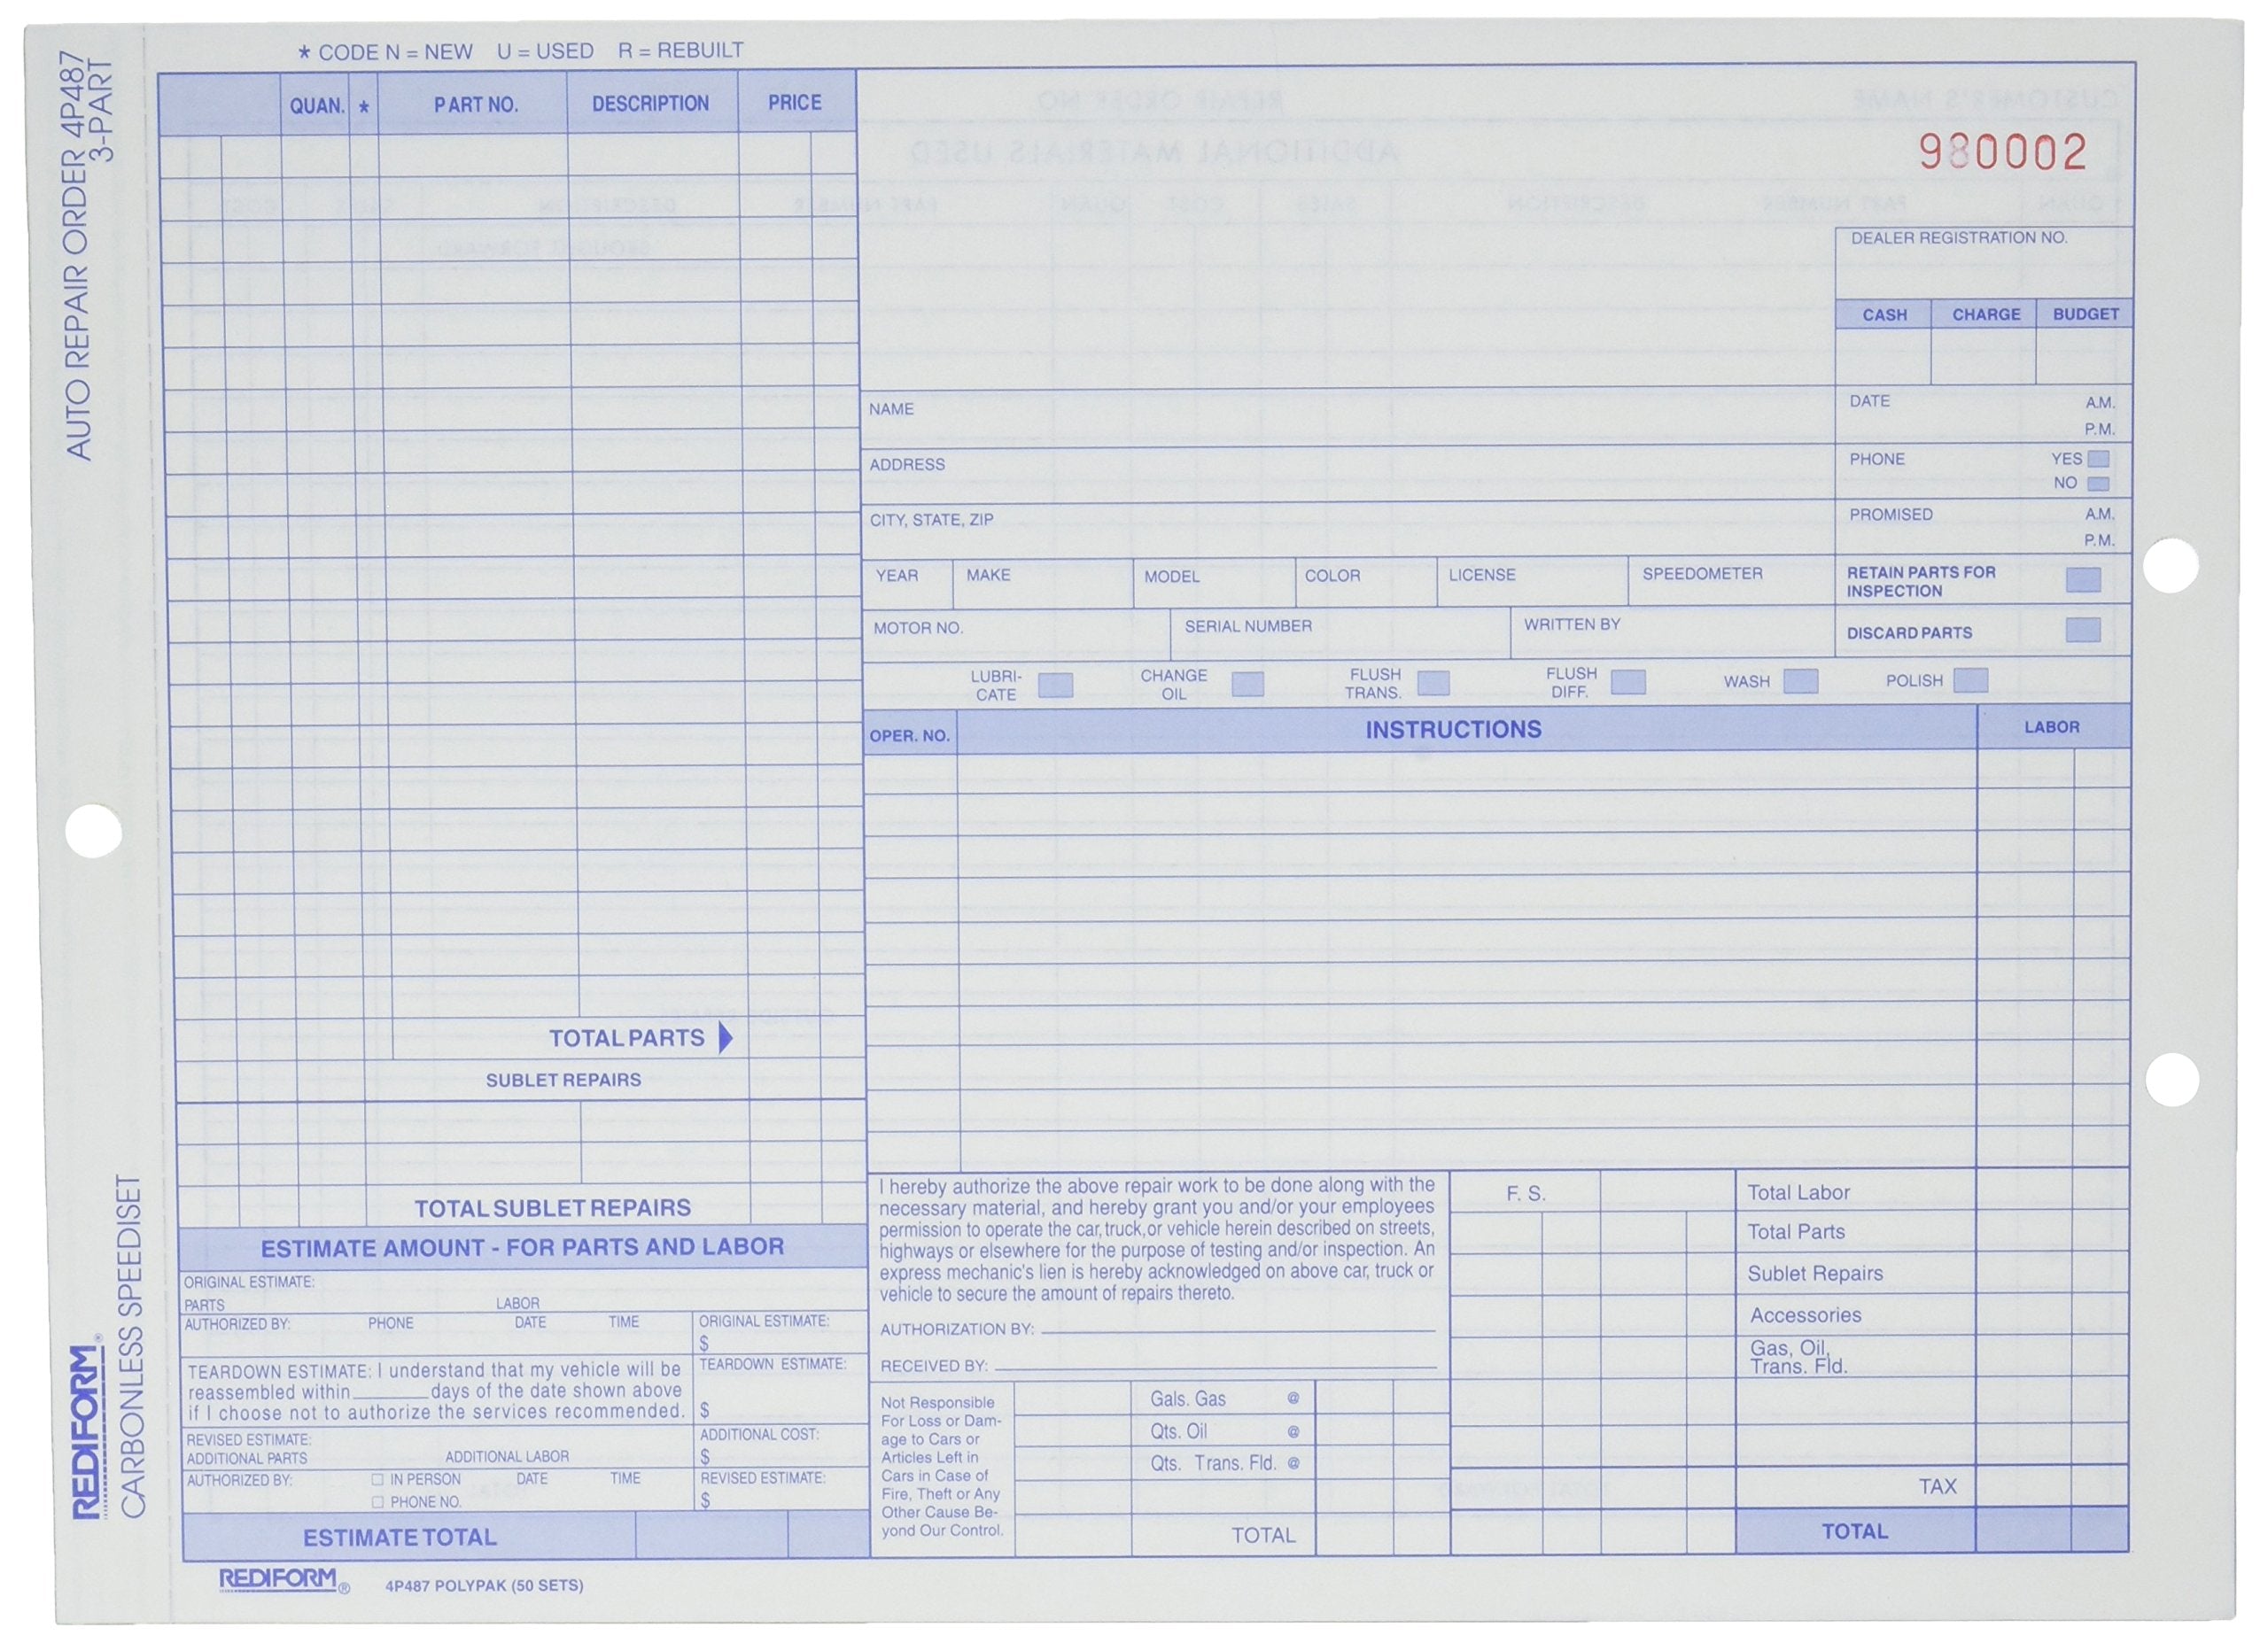 AUTO REPAIR ORDER 4P487
3-PART
REDIFORM®
CARBONLESS SPEEDISET
* CODE N = NEW U = USED R = REBUILT
QUAN. * PART NO. DESCRIPTION PRICE
TOTAL PARTS
SUBLET REPAIRS
TOTAL SUBLET REPAIRS
ESTIMATE AMOUNT - FOR PARTS AND LABOR
ORIGINAL ESTIMATE:
PARTS LABOR
AUTHORIZED BY: PHONE DATE TIME ORIGINAL ESTIMATE:
$
TEARDOWN ESTIMATE: I understand that my vehicle will be
reassembled within______days of the date shown above
if I choose not to authorize the services recommended.
TEARDOWN ESTIMATE:
$
REVISED ESTIMATE:
ADDITIONAL PARTS ADDITIONAL LABOR
ADDITIONAL COST:
$
AUTHORIZED BY: IN PERSON DATE TIME
PHONE NO.
REVISED ESTIMATE:
$
ESTIMATE TOTAL
REDIFORM® 4P487 POLYPAK (50 SETS)
CUSTOMER'S NAME REPAIR ORDER NO
ADDITIONAL MATERIALS USED
QUAN PART NUMBER DESCRIPTION SALES COST QUAN PART NUMBER DESCRIPTION
BROUGHT FORWARD
980002
DEALER REGISTRATION NO.
CASH CHARGE BUDGET
NAME
DATE A.M.
P.M.
ADDRESS
PHONE YES
NO
CITY, STATE, ZIP
PROMISED A.M.
P.M.
YEAR MAKE MODEL COLOR LICENSE SPEEDOMETER
RETAIN PARTS FOR
INSPECTION
MOTOR NO. SERIAL NUMBER WRITTEN BY
DISCARD PARTS
LUBRI-
CATE
CHANGE
OIL
FLUSH
TRANS.
FLUSH
DIFF.
WASH
POLISH
OPER. NO. INSTRUCTIONS LABOR
I hereby authorize the above repair work to be done along with the
necessary material, and hereby grant you and/or your employees
permission to operate the car, truck, or vehicle herein described on streets,
highways or elsewhere for the purpose of testing and/or inspection. An
express mechanic's lien is hereby acknowledged on above car, truck or
vehicle to secure the amount of repairs thereto.
AUTHORIZATION BY:
RECEIVED BY:
Not Responsible
For Loss or Dam-
age to Cars or
Articles Left in
Cars in Case of
Fire, Theft or Any
Other Cause Be-
yond Our Control.
Gals. Gas @
Qts. Oil @
Qts. Trans. Fld. @
TOTAL
F. S.
Total Labor
Total Parts
Sublet Repairs
Accessories
Gas, Oil,
Trans. Fld.
TAX
TOTAL